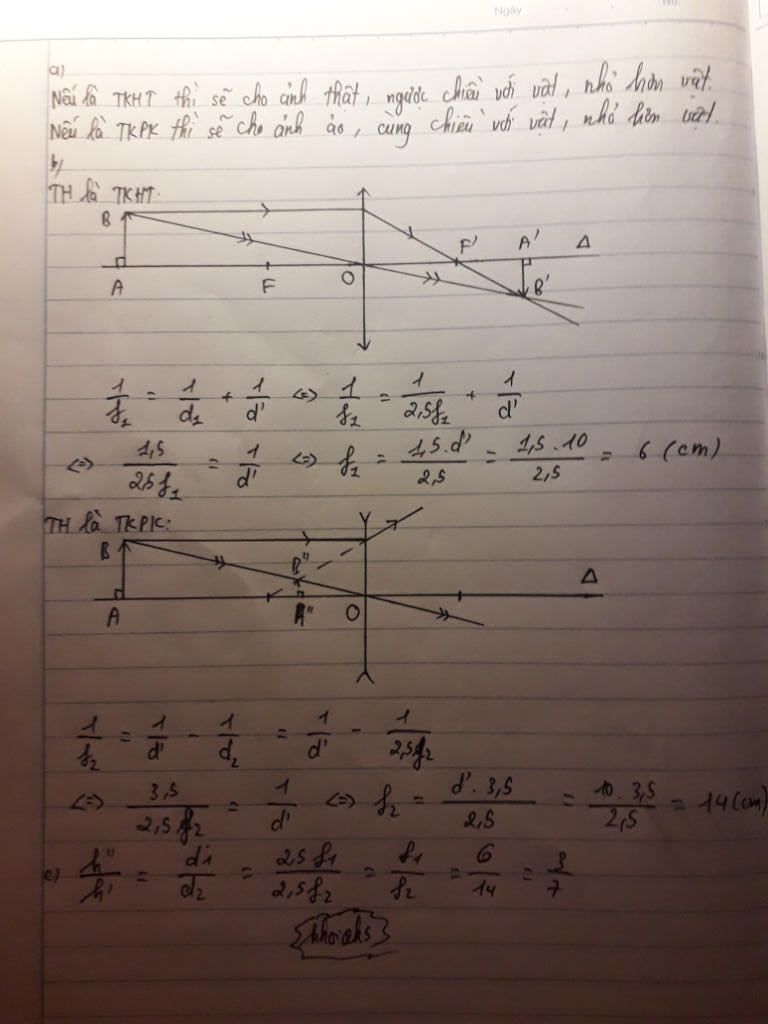 Ngày
No.
a)
Nếu là TKHT thì sẽ cho ảnh thật, ngược chiều với vật, nhỏ hơn vật.
Nếu là TKPK thì sẽ cho ảnh ảo, cùng chiều với vật, nhỏ hơn vật.
b)
TH là TKHT:
B F' A' Δ
A F O B'
1/f₁ = 1/d₁ + 1/d' <=> 1/f₁ = 1/2,5f₁ + 1/d'
<=> 1,5/2,5f₁ = 1/d' <=> f₁ = 1,5.d'/2,5 = 1,5.10/2,5 = 6 (cm)
TH là TKPK:
B B'' Δ
A A'' O
1/f₂ = 1/d' - 1/d₂ = 1/d' - 1/2,5f₂
<=> 3,5/2,5f₂ = 1/d' <=> f₂ = d'.3,5/2,5 = 10.3,5/2,5 = 14 (cm)
c) h''/h' = d₁/d₂ = 2,5f₁/2,5f₂ = f₁/f₂ = 6/14 = 3/7